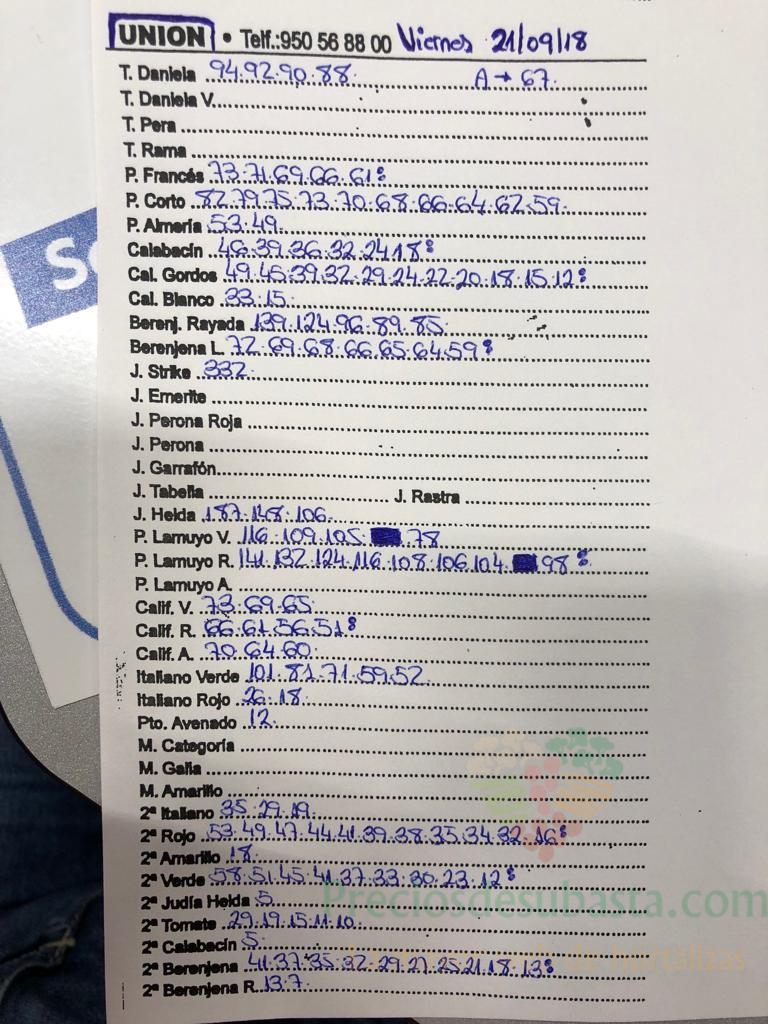 UNION • Telf.:950 56 88 00 Viernes 21/09/18
T. Daniela 94.92.90.88. A→67.
T. Daniela V.
T. Pera
T. Rama
P. Francés 73.71.69.66.61
P. Corto 82.79.75.73.70.68.66.64.62.59.
P. Almería 53.49.
Calabacín 46.39.36.32.24.18
Cal. Gordos 49.45.39.32.29.24.22.20.18.15.12
Cal. Blanco 33.15.
Berenj. Rayada 139.124.96.89.85.
Berenjena L. 72.69.68.66.65.64.59
J. Strike 332.
J. Emerite
J. Perona Roja
J. Perona
J. Garrafón
J. Tabella J. Rastra
J. Helda 187.148.106.
P. Lamuyo V. 116.109.105. 78
P. Lamuyo R. 141.132.124.116.108.106.104. 98
P. Lamuyo A.
Calif. V. 73.69.65
Calif. R. 66.61.56.51
Calif. A. 70.64.60.
Italiano Verde 101.81.71.59.52.
Italiano Rojo 26.18.
Pto. Avenado 12.
M. Categoría
M. Galia
M. Amarillo
2ª Italiano 35.29.19.
2ª Rojo 53.49.47.44.41.39.38.35.34.32.16
2ª Amarillo 18.
2ª Verde 58.51.45.41.37.33.30.23.12
2ª Judía Helda 5.
Preciosdesubasta.com
2ª Tomate 29.19.15.11.10.
2ª Calabacín 5.
2ª Berenjena 41.37.35.32.29.27.25.21.18.13
2ª Berenjena R. 13.7.